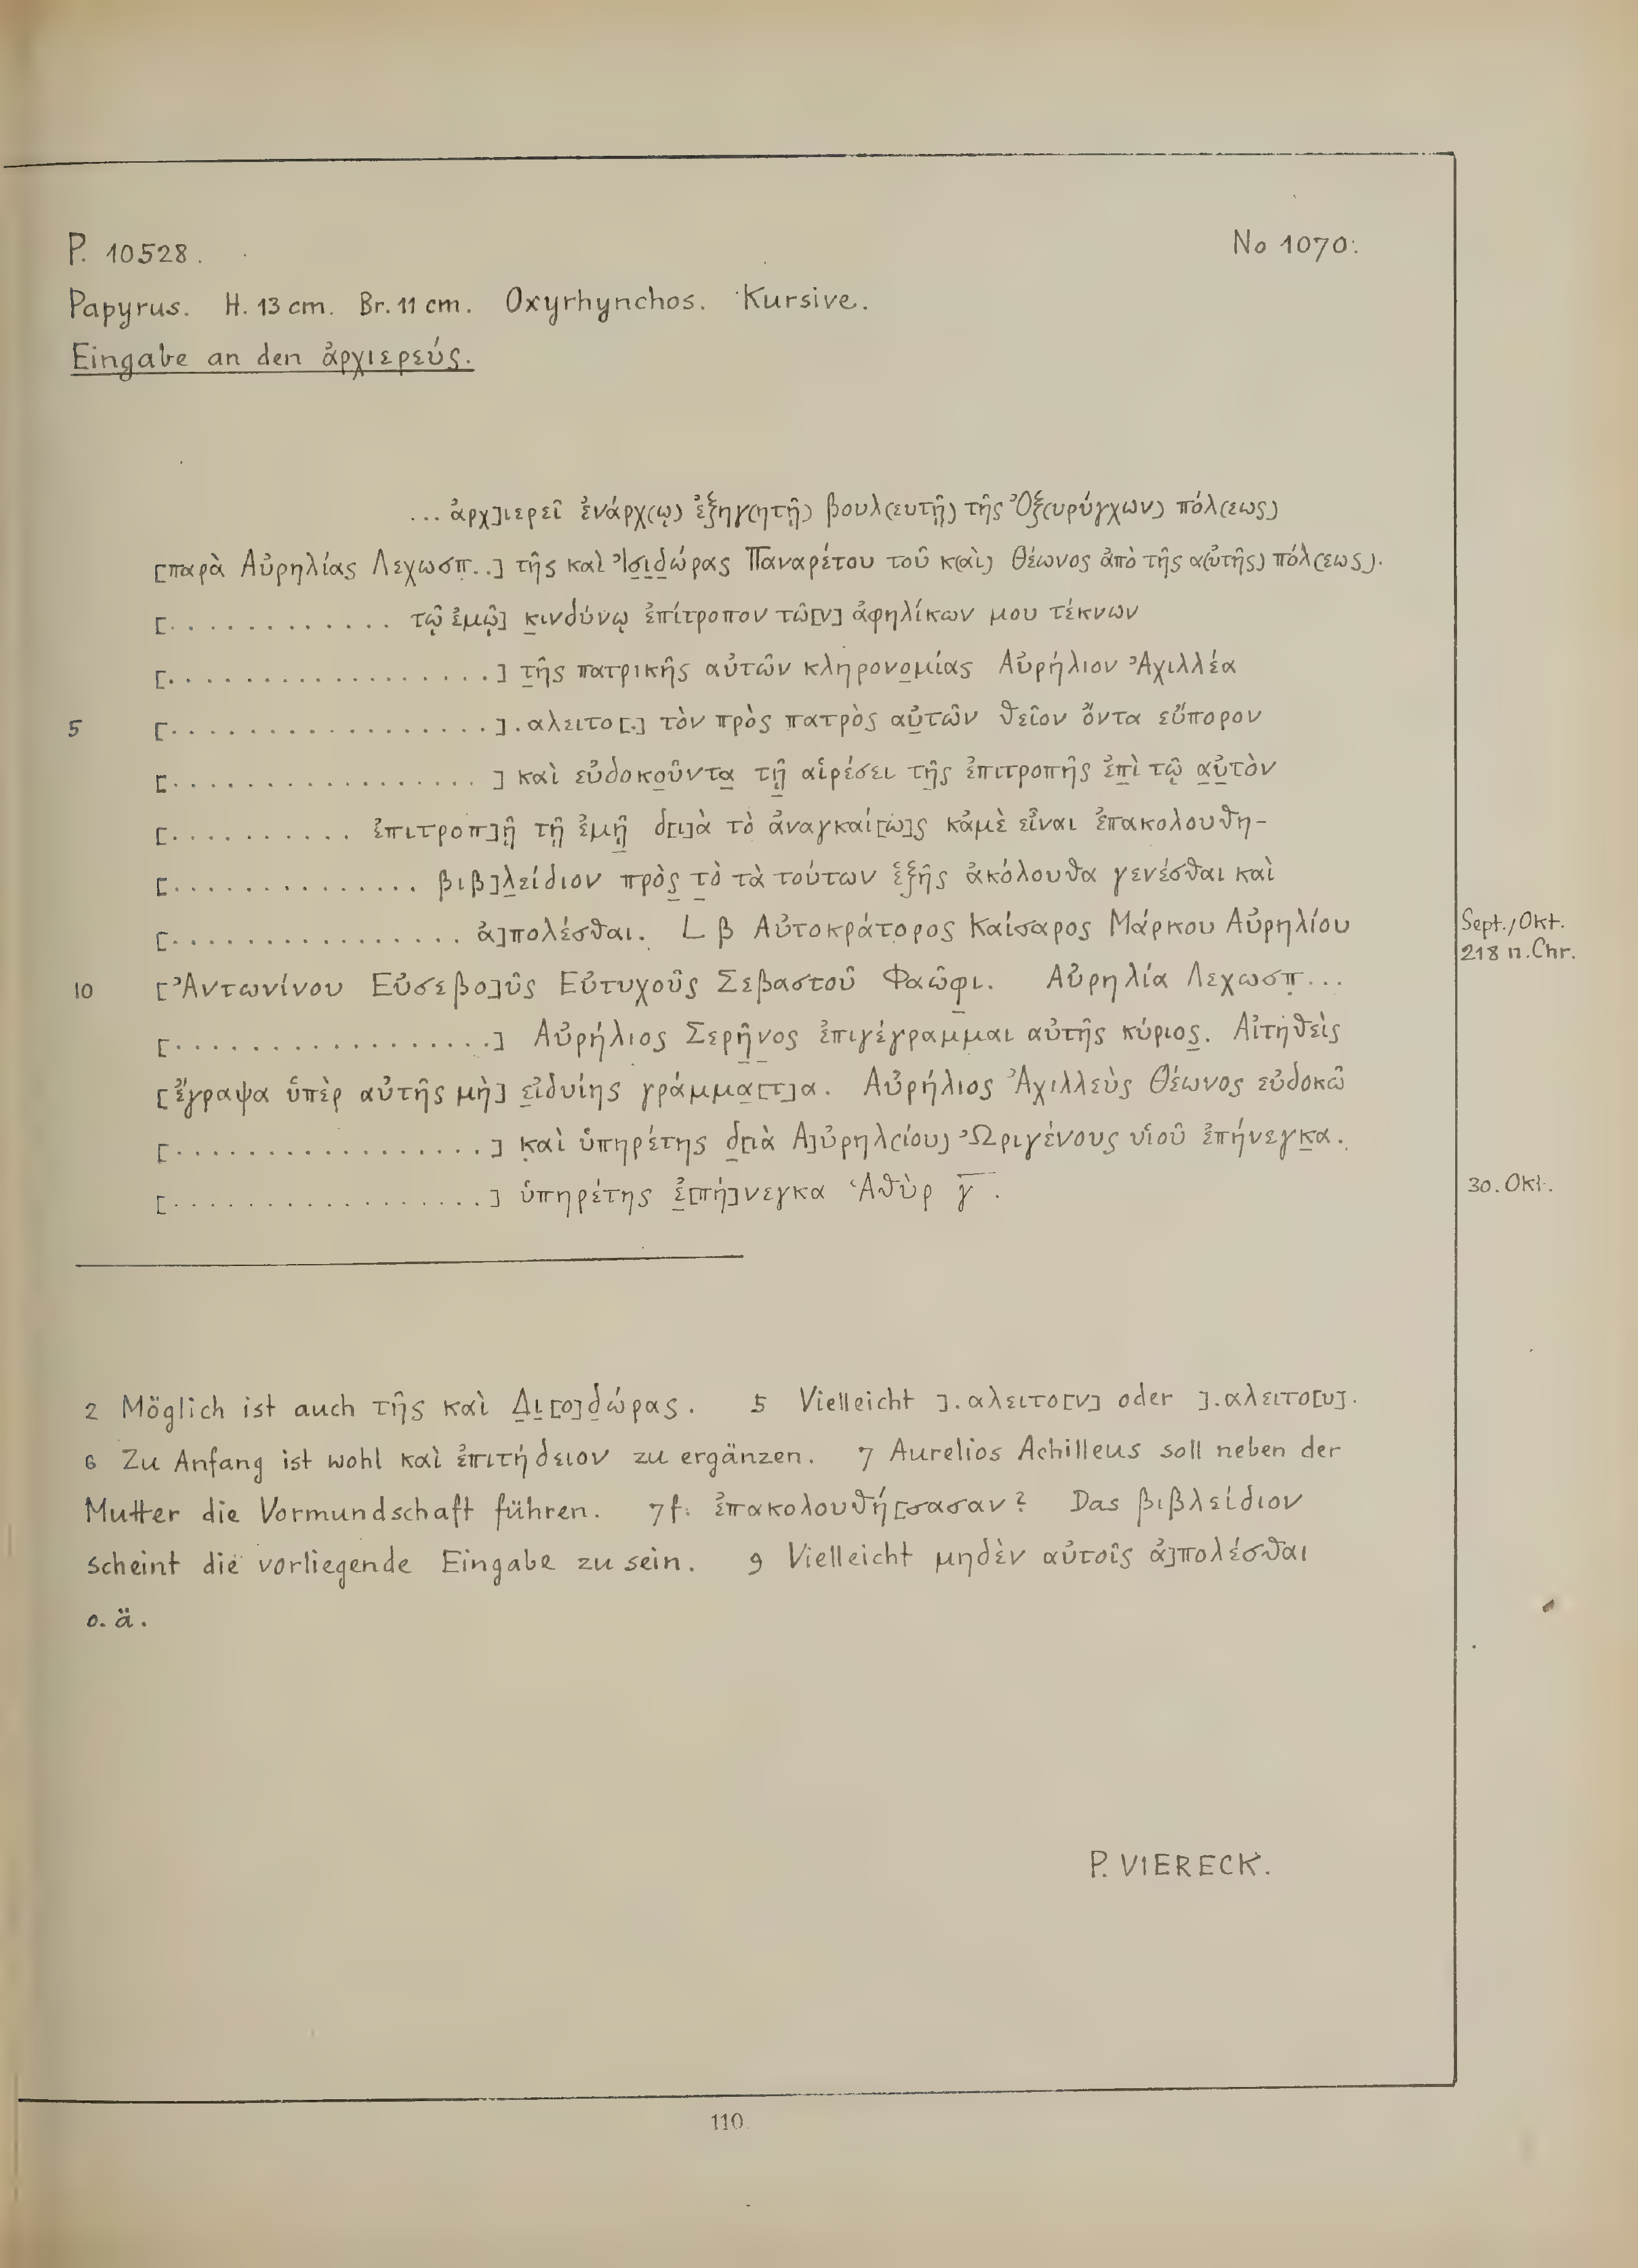 P. 10528. No 1070.
Papyrus. H. 13 cm. Br. 11 cm. Oxyrhynchos. Kursive.
Eingabe an den ἀρχιερεύς.
... ἀρχ]ιερεῖ ἐνάρχ(ῳ) ἐξηγ(ητῇ) βουλ(ευτῇ) τῆς Ὀξ(υρύγχων) πόλ(εως)
[παρὰ Αὐρηλίας Λεχωσπ̣..] τῆς καὶ Ἰσ̣ι̣δ̣ώρας Παναρέτου τοῦ κ(αὶ) Θέωνος ἀπὸ τῆς α(ὐτῆς) πόλ(εως).
[............ τῷ ἐμῷ] κ̣ινδύνῳ ἐπίτροπον τῶ[ν] ἀφηλίκων μου τέκνων
[.................] τ̣ῆς πατρικῆς αὐτῶν κληρονο̣μίας Αὐρήλιον Ἀχιλλέα
5 [.................].αλειτο[.] τὸν πρὸς πατρὸς αὐ̣τῶν θεῖον ὄντα εὔπορον
[................] καὶ εὐδοκο̣ῦντα̣ τῇ̣ αἱρέσει τ̣ῆς ἐπιτροπῆς ἐπ̣ὶ τῷ α̣ὐ̣τὸν
[.......... ἐπιτροπ]ῇ τῇ ἐμῇ̣ δ[ι]ὰ τὸ ἀναγκαί[ω]ς κἀμὲ εἶναι ἐπακολουθη-
[.............. βιβ]λ̣είδιον πρὸς̣ τ̣ὸ τὰ τούτων ἑξῆς ἀκόλουθα γενέσθαι καὶ
[................ ἀ]πολέσθαι. L β Αὐτοκράτορος Καίσαρος Μάρκου Αὐρηλίου
Sept./Okt.
218 n. Chr.
10 [Ἀντωνίνου Εὐσεβο]ῦς Εὐτυχοῦς Σεβαστοῦ Φαῶφ̣ι. Αὐρηλία Λεχωσπ̣...
[.................] Αὐρήλιος Σερῆ̣ν̣ος ἐπιγέγραμμαι αὐτῆς κύριος̣. Αἰτηθεὶς
[ἔγραψα ὑπὲρ αὐτῆς μὴ] ε̣ἰδυίης γράμμα̣[τ]α. Αὐρήλιος Ἀχιλλεὺς Θέωνος εὐδοκῶ
[.................] κ̣αὶ ὑπηρέτης δ̣[ιὰ Α]ὐρηλ(ίου) Ὠριγένους υἱοῦ ἐπήνεγκ̣α.
[.................] ὑπηρέτης ἐ̣[πή]νεγκα Ἁθὺρ γ̅.
30. Okt.
2 Möglich ist auch τῆς καὶ Δ̣ι̣[ο]δ̣ώρας. 5 Vielleicht ].αλειτο[ν] oder ].αλειτο[υ].
6 Zu Anfang ist wohl καὶ ἐπιτήδειον zu ergänzen. 7 Aurelios Achilleus soll neben der
Mutter die Vormundschaft führen. 7f. ἐπακολουθή[σασαν? Das βιβλείδιον
scheint die vorliegende Eingabe zu sein. 9 Vielleicht μηδὲν αὐτοῖς ἀ]πολέσθαι
o. ä.
P. VIERECK.
110